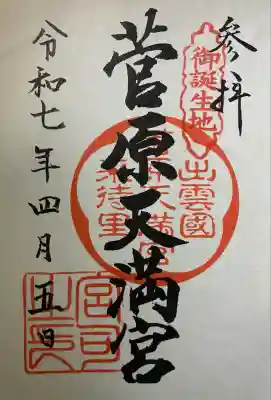 参拝
御誕生地
出雲國
菅原天満宮
来待里
令和七年四月五日
宮司
之印